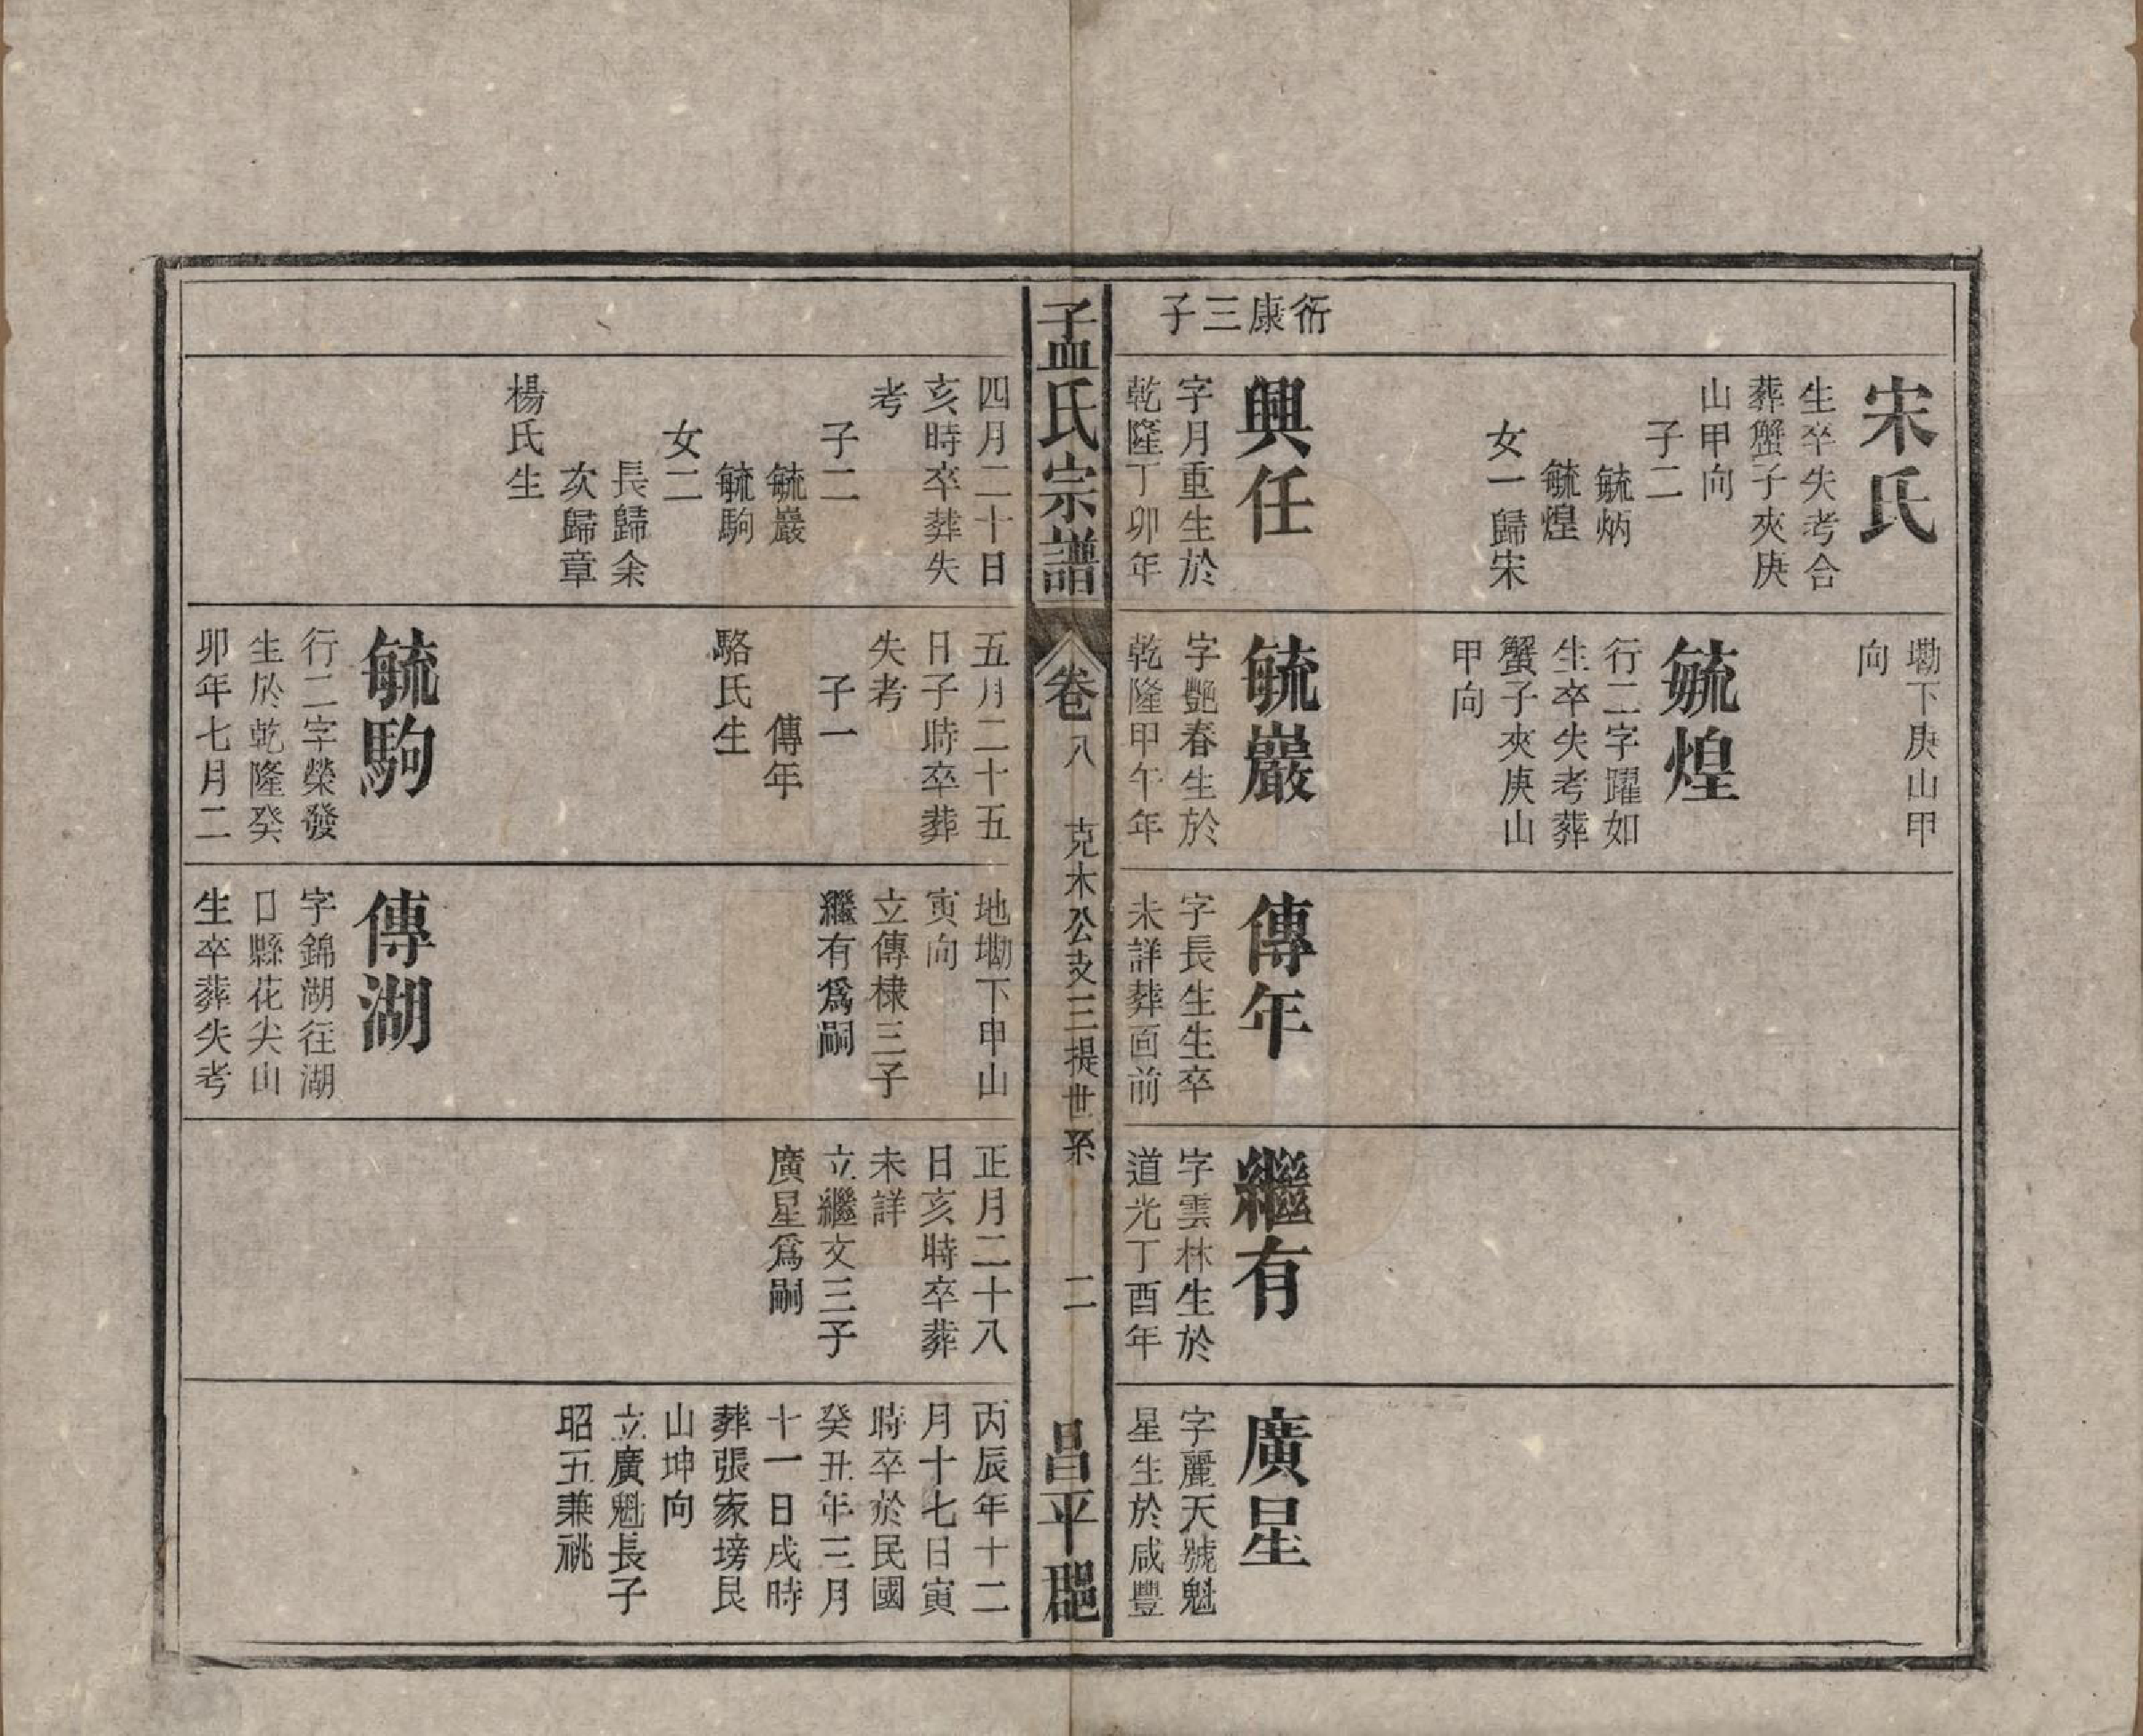 衒康三子
宋氏
生卒失考合
葬蟹子夾庚
山甲向
子二
毓炳
毓煌
女一歸宋
興任
字月重生於
乾隆丁卯年
墈下庚山甲
向
毓煌
行二字躍如
生卒失考葬
蟹子夾庚山
甲向
毓巖
字艷春生於
乾隆甲午年
傳年
字長生生卒
未詳葬面前
繼有
字雲林生於
道光丁酉年
廣星
字麗天號魁
星生於咸豐
孟氏宗譜
卷八
克木公支三提世系
二
昌平郡
四月二十日
亥時卒葬失
考
子二
毓巖
毓駒
女二
長歸余
次歸章
楊氏生
五月二十五
日子時卒葬
失考
子一
傳年
駱氏生
毓駒
行二字榮發
生於乾隆癸
卯年七月二
地墈下甲山
寅向
立傳棣三子
繼有爲嗣
傳湖
字錦湖往湖
口縣花尖山
生卒葬失考
正月二十八
日亥時卒葬
未詳
立繼文三子
廣星爲嗣
丙辰年十二
月十七日寅
時卒於民國
癸丑年三月
十一日戌時
葬張家塝艮
山坤向
立廣魁長子
昭五兼祧